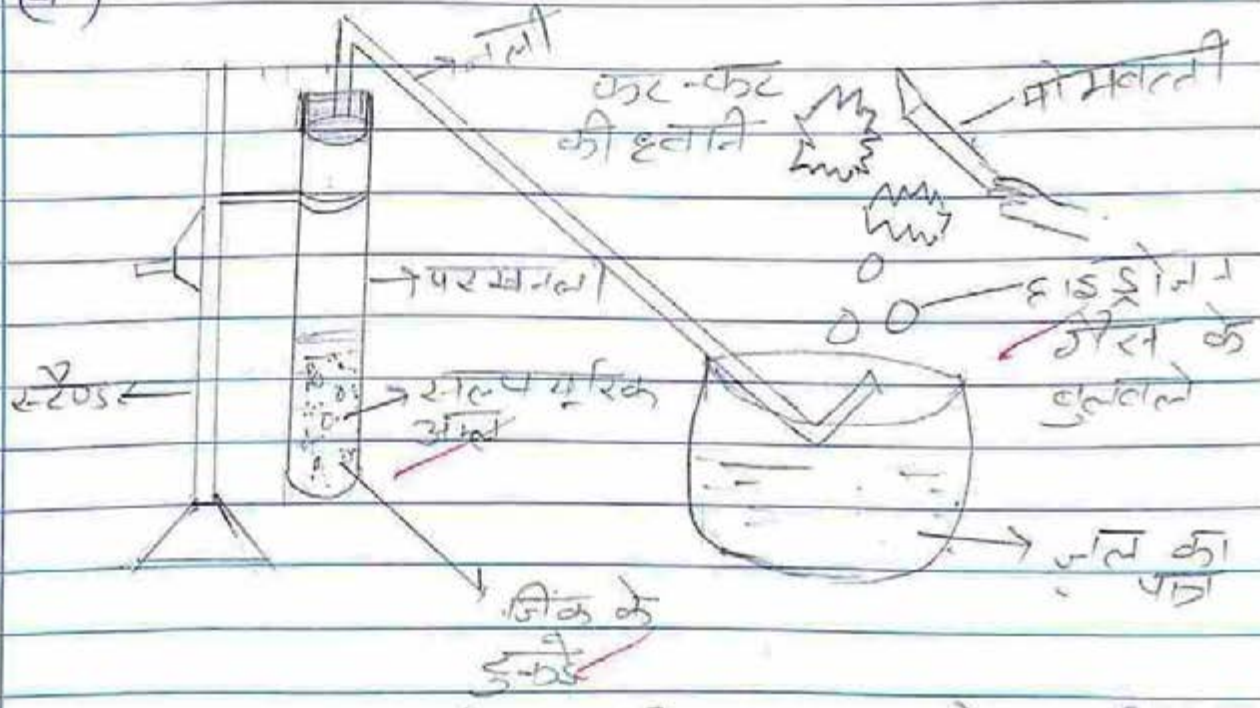 नली
कट-कट
की ध्वनि
मोमबत्ती
परखनली
हाइड्रोजन
गैस के
बुलबले
स्टैण्ड
सल्फ्यूरिक
अम्ल
जल का
पात्र
जिंक के
टुकड़े